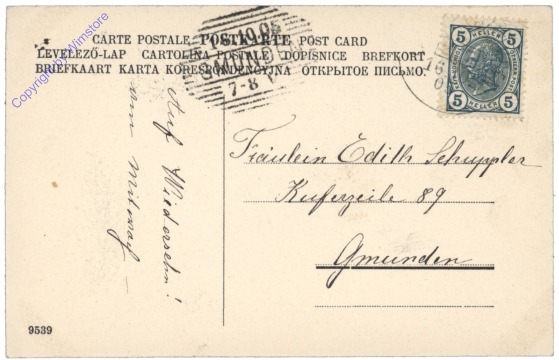 CARTE POSTALE POSTKARTE POST CARD
LEVELEZŐ-LAP CARTOLINA POSTALE DOPISNICE BREFKORT
BRIEFKAART KARTA KORESPONDENCYJNA ОТКРЫТОЕ ПИСЬМО.
7-8
5 HELLER 5
5 HELLER 5
16
Auf Wiedersehn!
am Mittwoch
Fräulein Edith Schuppler
Kuferzeile 89
Gmunden
9539
Copyright by Wimstore